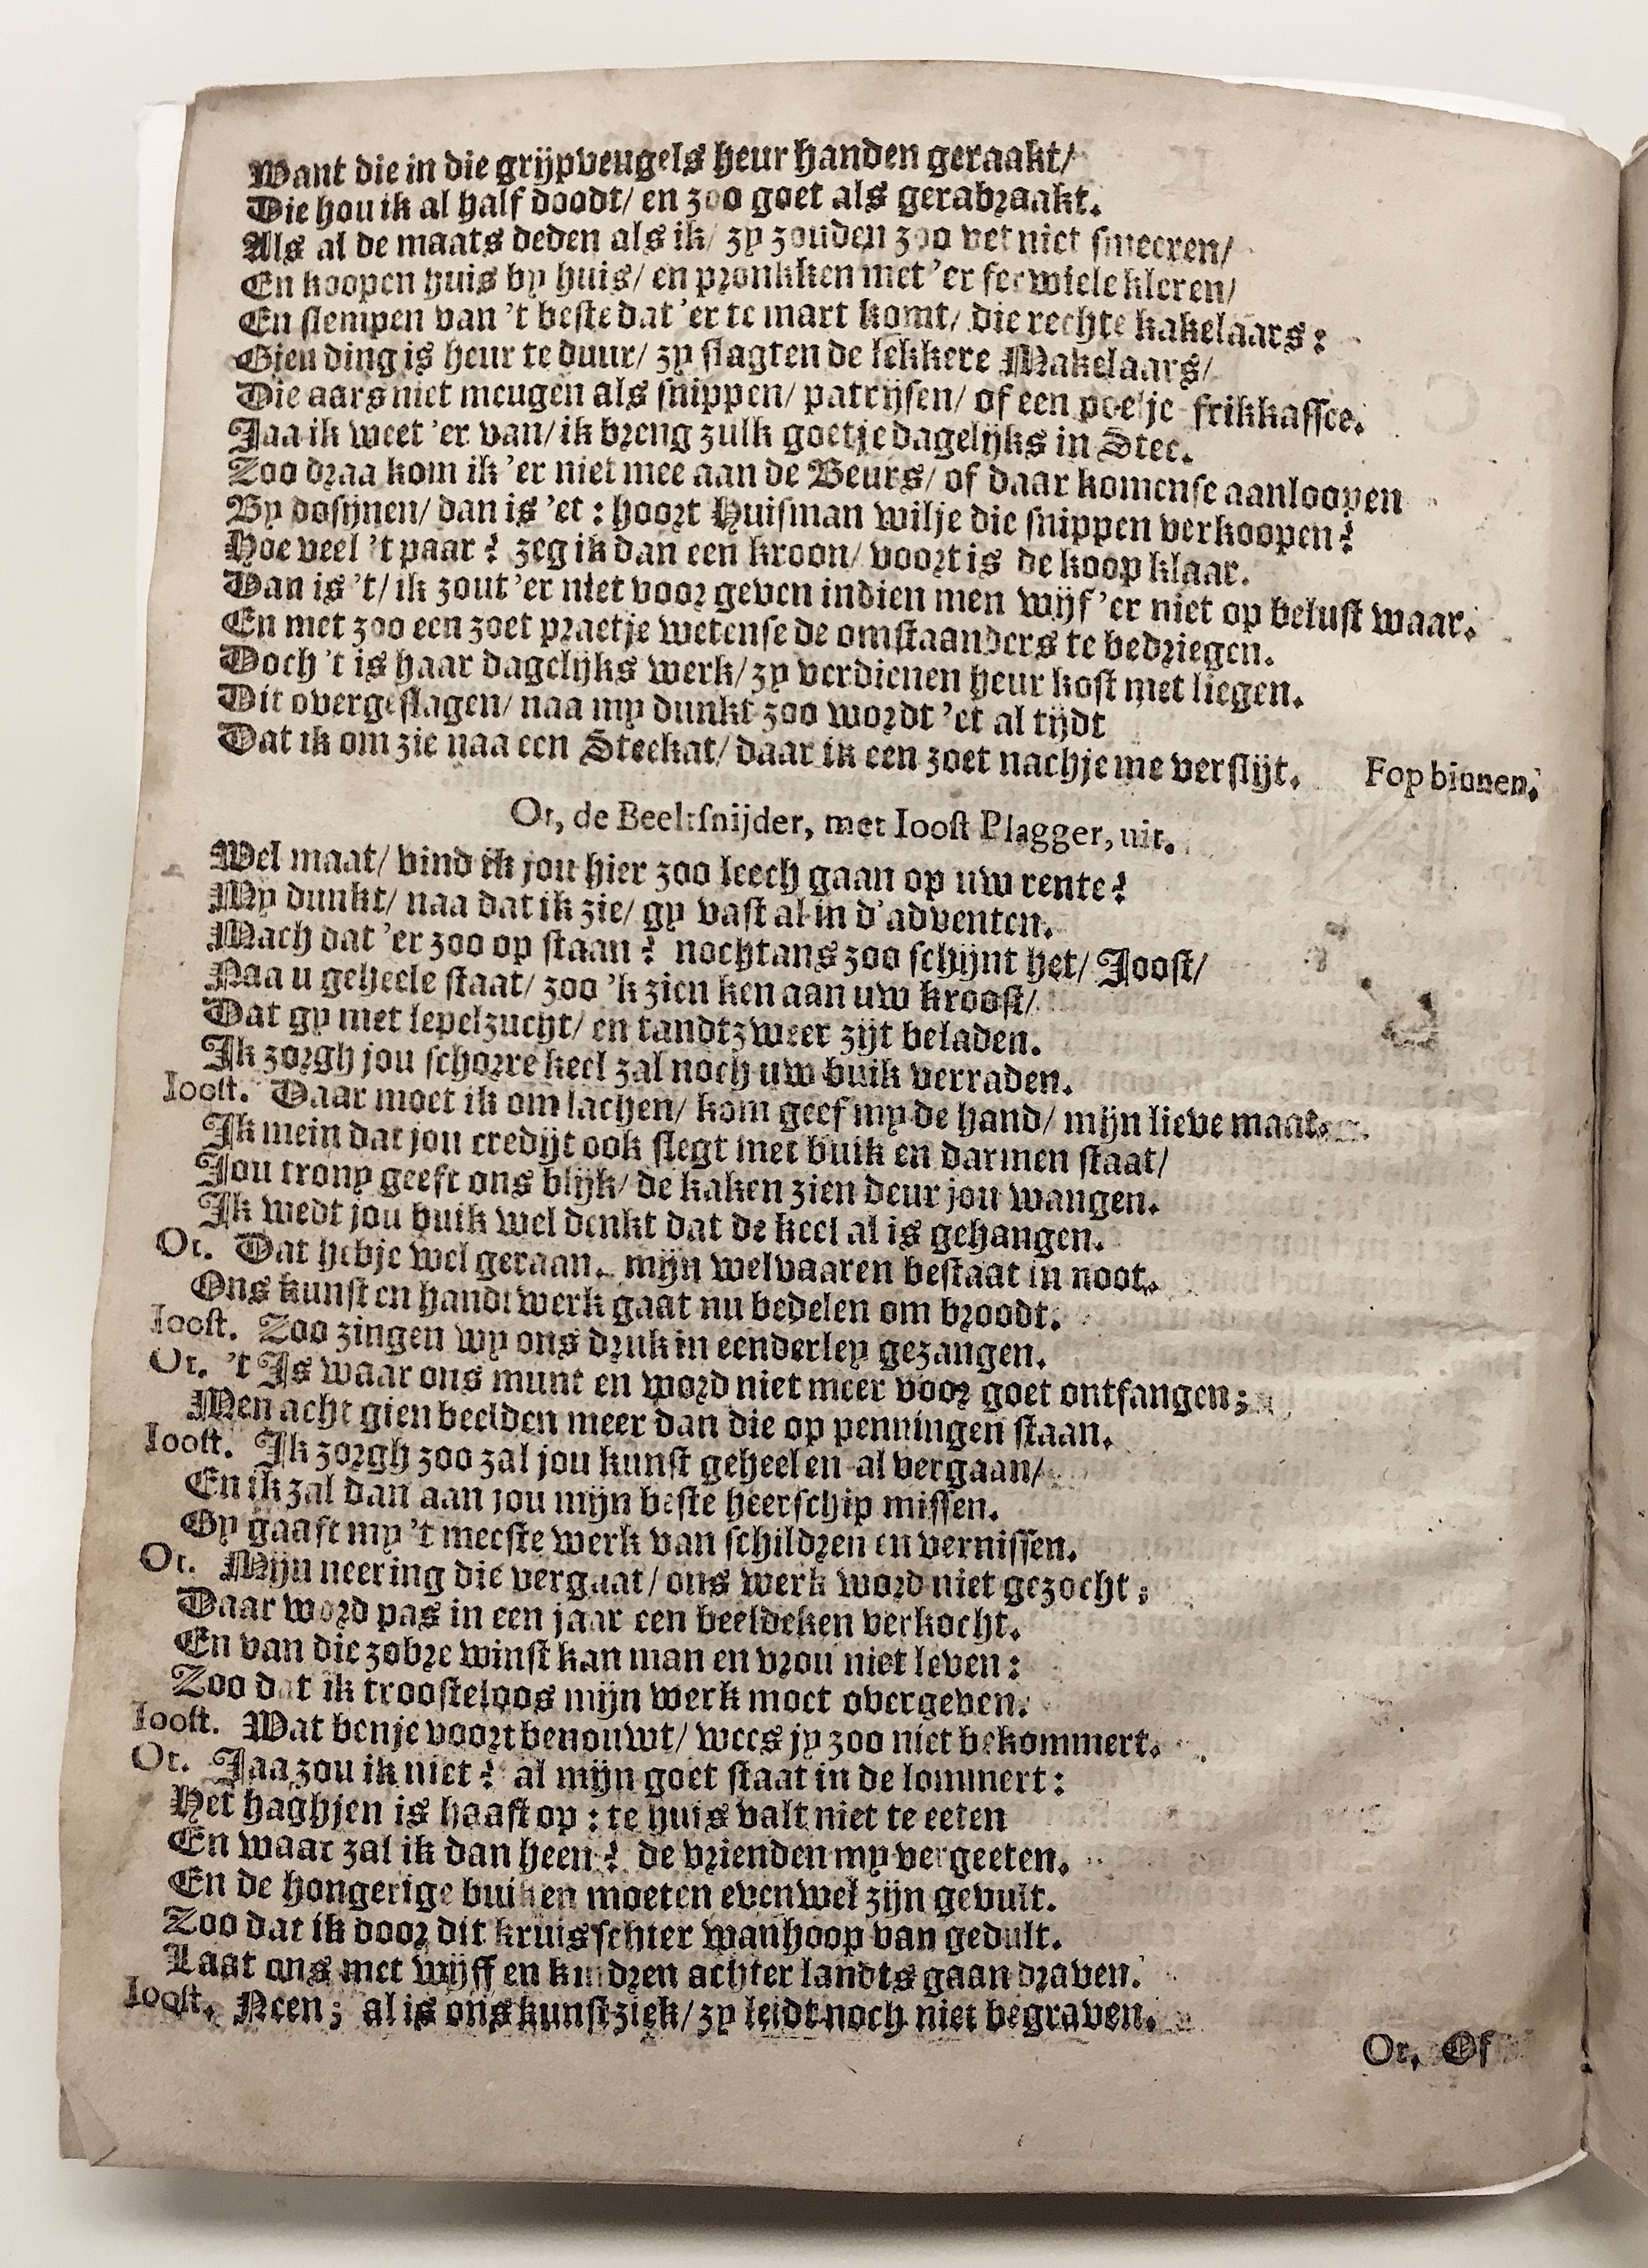 Want die in die grijpveugels heur handen geraakt/
Die hou ik al half doodt/ en zoo goet als gerabraakt.
Als al de maats deden als ik/ zy zouden zoo vet niet smeeren/
En koopen huis by huis/ en pronkken met 'er ferwiele kleren/
En slempen van 't beste dat 'er te mart komt/ die rechte kakelaars:
Gien ding is heur te duur/ zy slagten de lekkere Makelaars/
Die aars niet meugen als snippen/ patrijsen/ of een poelje frikkassee.
Jaa ik weet 'er van/ ik breng zulk goetje dagelijks in Stee.
Zoo draa kom ik 'er niet mee aan de Beurs/ of daar komense aanloopen
By dosijnen/ dan is 'et: hoort Huisman wilje die snippen verkoopen?
Hoe veel 't paar? zeg ik dan een kroon/ voort is de koop klaar.
Dan is 't/ ik zout 'er niet voor geven indien men wijf 'er niet op belust waar.
En met zoo een zoet praetje wetense de omstaanders te bedriegen.
Doch 't is haar dagelijks werk/ zy verdienen heur kost met liegen.
Dit overgeslagen/ naa my dunkt zoo wordt 'et al tijdt
Dat ik om zie naa een Steekat/ daar ik een zoet nachje me verslijt. Fop binnen.
Or, de Beeltsnijder, met Ioost Plagger, uit.
Wel maat/ vind ik jou hier zoo leech gaan op uw rente?
My dunkt/ naa dat ik zie/ gy vast al in d'adventen.
Mach dat 'er zoo op staan? nochtans zoo schijnt het/ Joost/
Naa u geheele staat/ zoo 'k zien ken aan uw kroost/
Dat gy met lepelzucht/ en tandtzweer zijt beladen.
Ik zorgh jou schorre keel zal noch uw buik verraden.
Ioost. Daar moet ik om lachen/ kom geef my de hand/ mijn lieve maat.
Ik mein dat jou credijt ook slegt met buik en darmen staat/
Jou trony geeft ons blijk/ de kaken zien deur jou wangen.
Ik wedt jou buik wel denkt dat de keel al is gehangen.
Or. Dat hebje wel geraan. mijn welvaaren bestaat in noot.
Ons kunst en handtwerk gaat nu bedelen om broodt.
Ioost. Zoo zingen wy ons druk in eenderley gezangen.
Or. 't Is waar ons munt en word niet meer voor goet ontfangen;
Men acht gien beelden meer dan die op penningen staan.
Ioost. Ik zorgh zoo zal jou kunst geheel en al vergaan/
En ik zal dan aan jou mijn beste heerschip missen.
Gy gaaft my 't meeste werk van schildren en vernissen.
Or. Mijn neering die vergaat/ ons werk word niet gezocht;
Daar word pas in een jaar een beeldeken verkocht.
En van die zobre winst kan man en vrou niet leven:
Zoo dat ik troosteloos mijn werk moet overgeven.
Ioost. Wat benje voort benouwt/ wees jy zoo niet bekommert.
Or. Jaa zou ik niet? al mijn goet staat in de lommert:
Het haghjen is haast op: te huis valt niet te eeten
En waar zal ik dan heen? de vrienden my vergeeten.
En de hongerige buiken moeten evenwel zijn gevult.
Zoo dat ik door dit kruis schier wanhoop van gedult.
Laat ons met wijff en kindren achter landts gaan draven.
Ioost. Neen; al is ons kunst ziek/ zy leidt noch niet begraven.
Or. Of